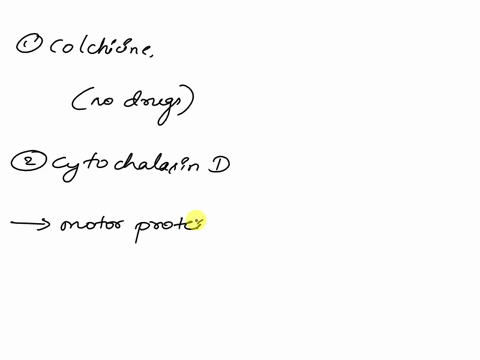 ① Colchicine.
(no drugs)
② Cytochalasin D
→ motor protei